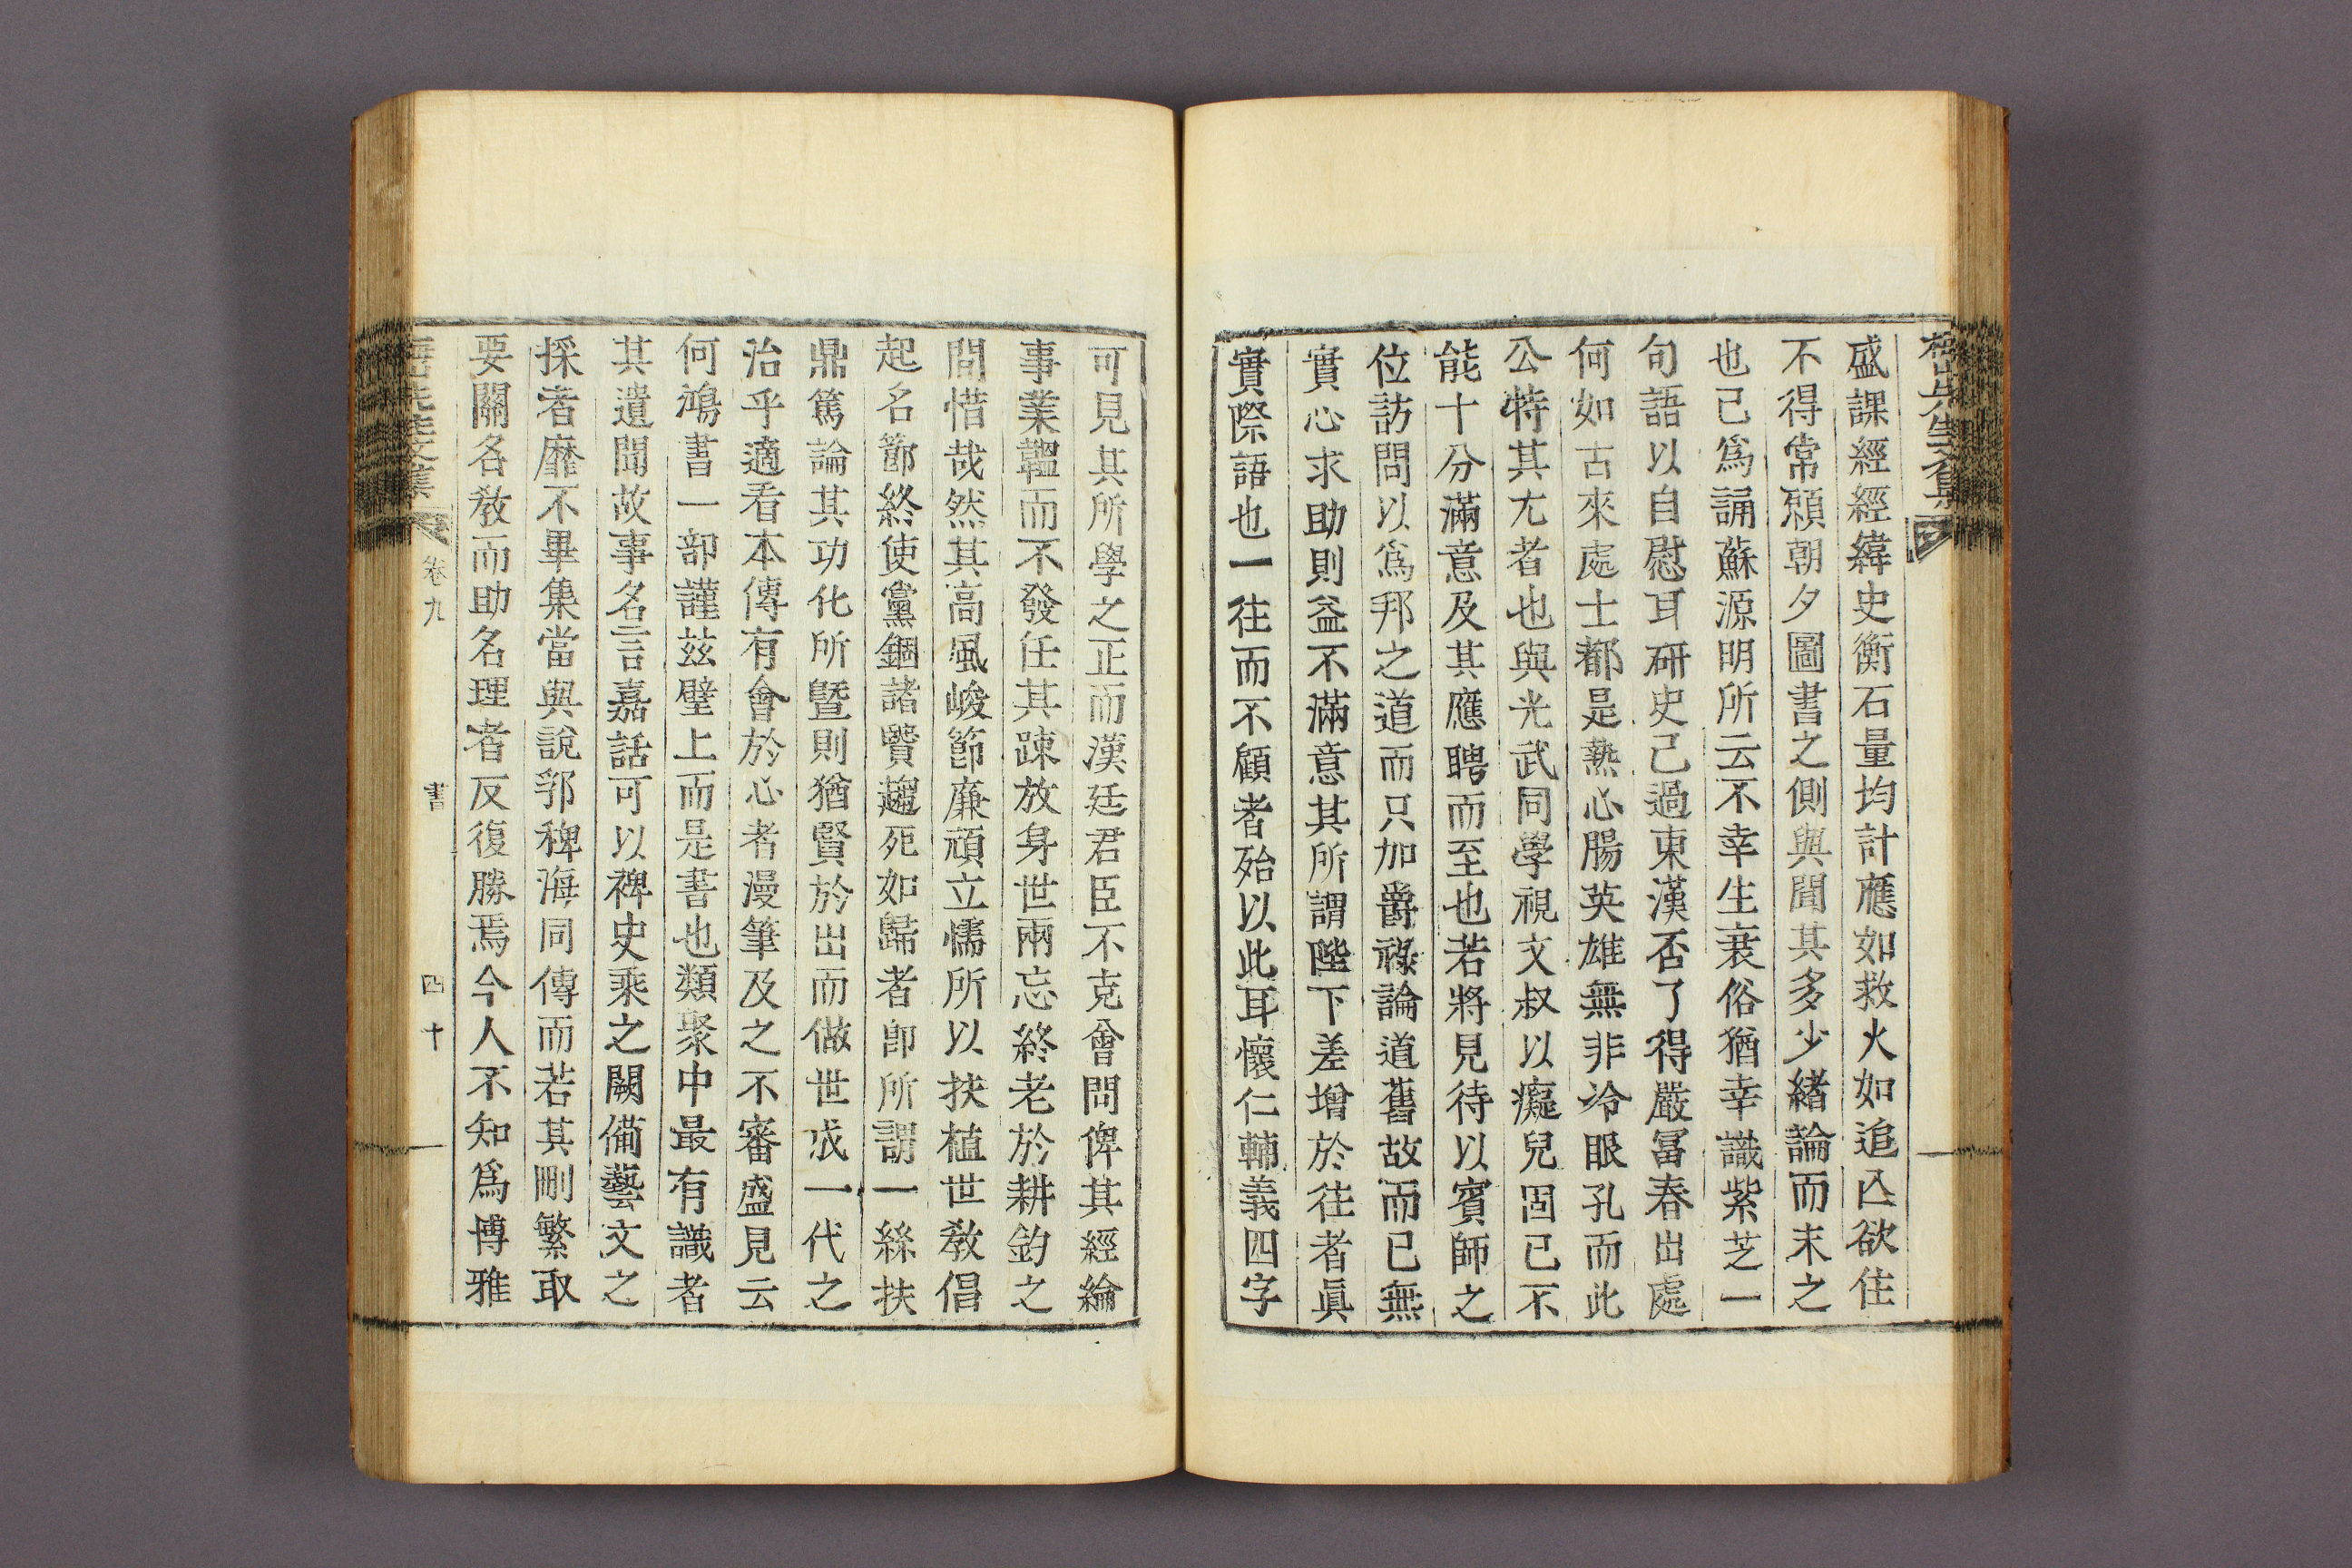 盛課經經緯史衡石量均計應如救火如追亾欲住
不得常願朝夕圖書之側與聞其多少緒論而末之
也已爲誦蘇源明所云不幸生衰俗猶幸識紫芝一
句語以自慰耳硏史已過東漢否了得嚴富春出處
何如古來處士都是熱心腸英雄無非冷眼孔而此
公特其尤者也與光武同學視文叔以癡兒固已不
能十分滿意及其應聘而至也若將見待以賓師之
位訪問以爲邦之道而只加爵祿論道舊故而已無
實心求助則益不滿意其所謂陛下差增於往者眞
實際語也一往而不顧者殆以此耳懷仁輔義四字
可見其所學之正而漢廷君臣不克會問俾其經綸
事業韞而不發任其踈放身世兩忘終老於耕釣之
間惜哉然其高風峻節廉頑立懦所以扶植世敎倡
起名節終使黨錮諸賢趨死如歸者卽所謂一絲扶
鼎篤論其功化所曁則猶賢於出而做世成一代之
治乎適看本傳有會於心者漫筆及之不審盛見云
何鴻書一部謹玆璧上而是書也類聚中最有識者
其遺聞故事名言嘉話可以裨史乘之闕備藝文之
採者靡不畢集當與說郛稗海同傳而若其刪繁取
要關各敎而助名理者反復勝焉今人不知爲博雅
卷九 書 四十